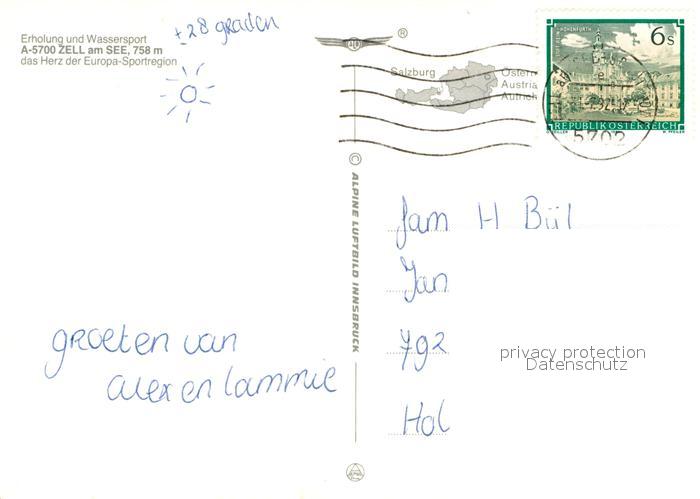 Erholung und Wassersport
A-5700 ZELL am SEE, 758 m
das Herz der Europa-Sportregion
± 28 graden
®
Salzburg
Österr
Austria
Autrich
6s
STIFT REIN-HOHENFURTH
REPUBLIK ÖSTERREICH
5702
© ALPINE LUFTBILD INNSBRUCK
fam H Bül
Jan
792
Hol
privacy protection
Datenschutz
groeten van
alex en lammie